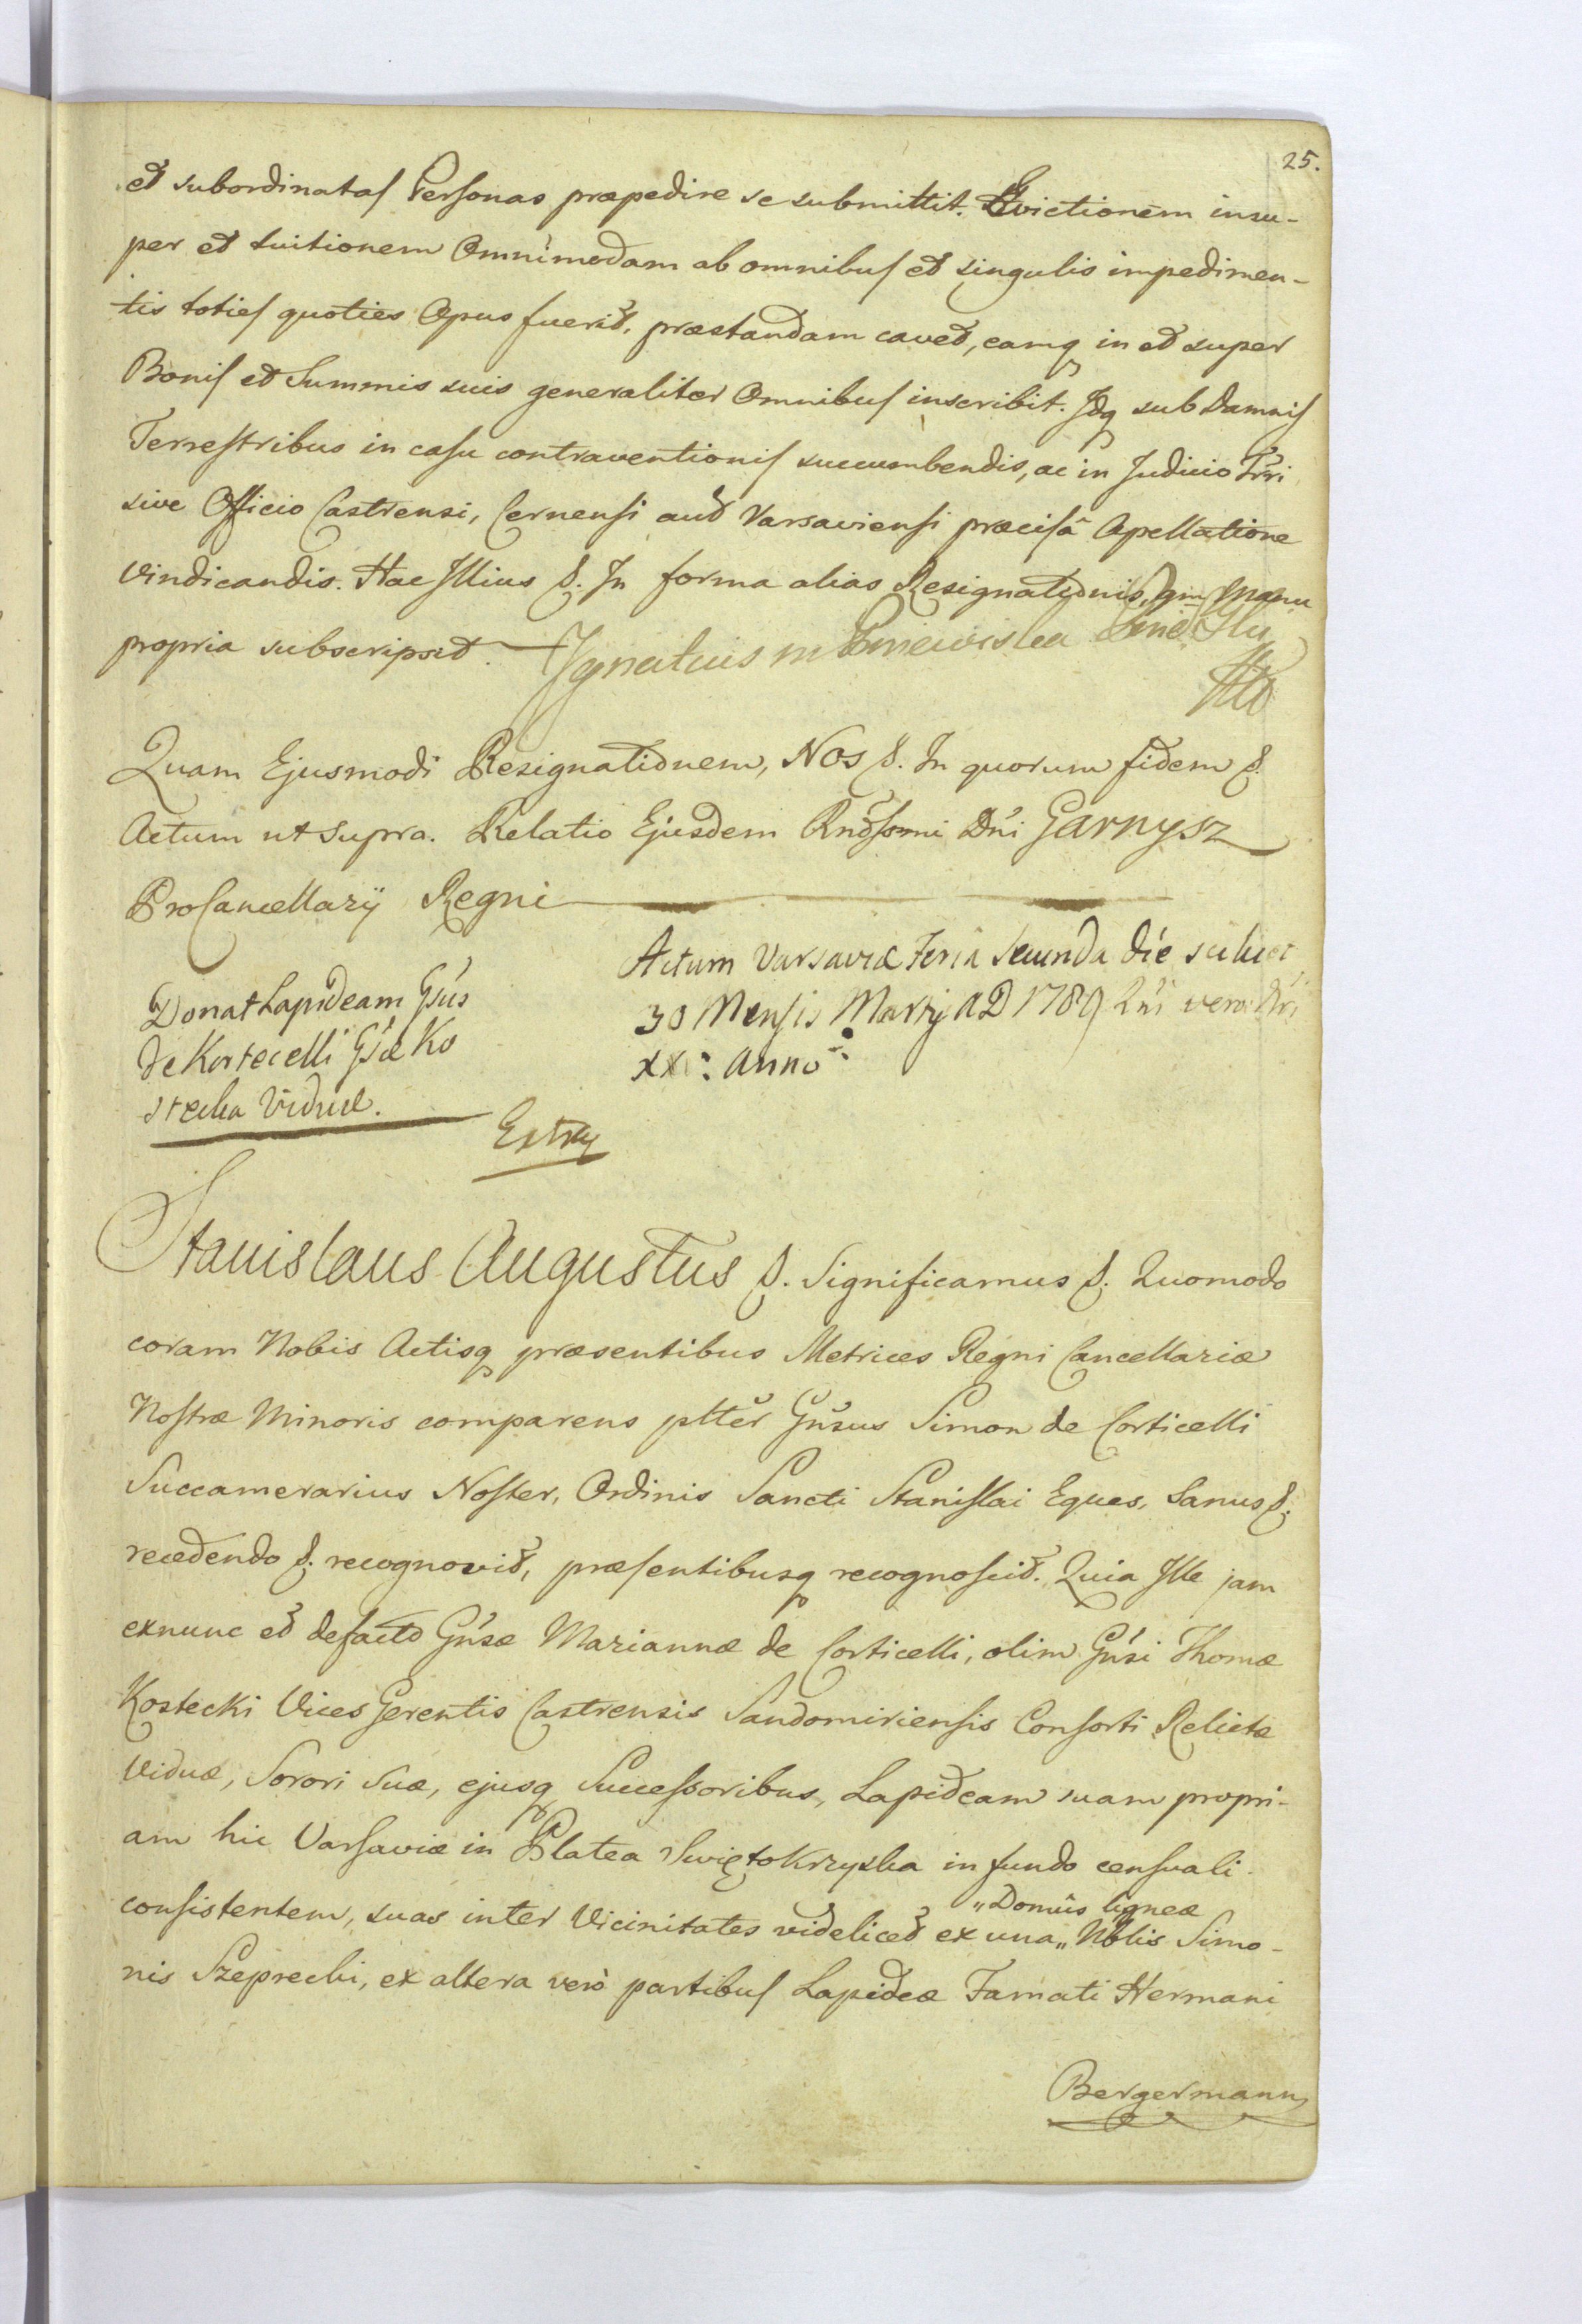 25.
et subordinatas Personas præpedire se submittit. Evictionem insu-
per et tuitionem Omnimodam ab omnibus et singulis impedimen-
tis toties quoties Opus fuerit, præstandam cavet, eamq in et super
Bonis et Summis suis generaliter Omnibus inscribit. Idq sub Damnis
Terrestribus in casu contraventionis succumbendis, ac in Judicio Trri
sive Officio Castrensi, Cernensi aut Varsaviensi præcisâ Apellatione
Vindicandis. Hac Illius &. In forma alias Resignationis, Manu
propria subscripsit. Ignatius
Quam Ejusmodi Resignationem, Nos &. In quorum fidem &.
Actum ut supra. Relatio Ejusdem Rndssmi Dni Garnysz
ProCancellarij Regni
Actum Varsaviæ Feria Secunda die scilicet
30 Mensis Martij AD 1789 Rni vero Nri
XX: Anno
Donat Lapideam Gsus
de Kortecelli Gsæ Ko
stecka Viduæ.
Extra
Stanislaus Augustus &. Significamus &. Quomodo
coram Nobis Actisq præsentibus Metrices Regni Cancellariæ
Nostræ Minoris comparens pltter Gnsus Simon de Corticelli
Succamerarius Noster, Ordinis Sancti Stanislai Eques, Sanus &.
recedendo &. recognovit, præsentibusq recognoscit. Quia Ille jam
exnunc et defacto Gnsæ Mariannæ de Corticelli, olim Gnsi Thomæ
Kostecki Vices Gerentis Castrensis Sandomiriensis Consorti Relictæ
Viduæ, Sorori Suæ, ejusq Successoribus, Lapideam suam propri-
am hic Varsaviæ in Platea Swiętokrzyska in fundo censuali
consistentem, suas inter Vicinitates videlicet ex una „ Nblis Simo-
„Domûs ligneæ
nis Szeprecki, ex altera verò partibus Lapideæ Famati Hermani
Bergermann